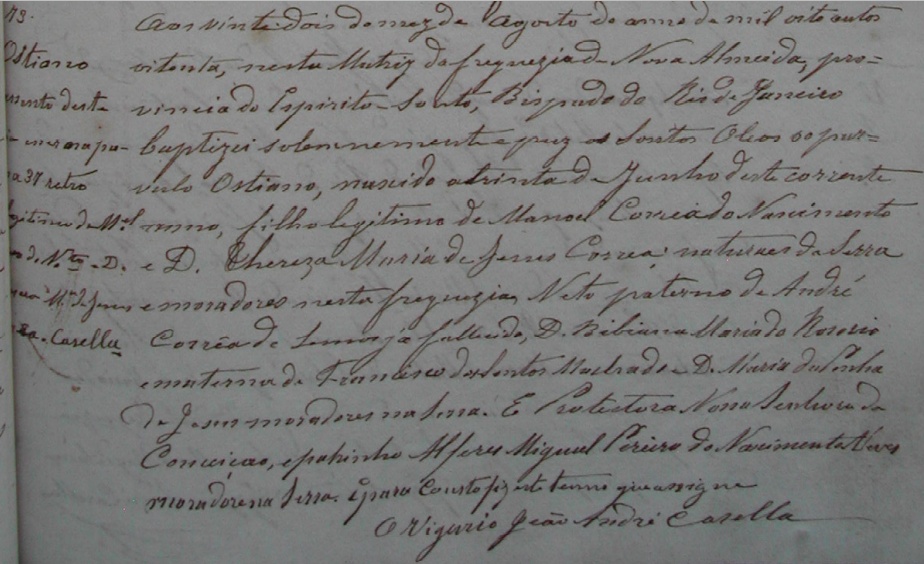 73.
Ostiano
mento deste
a 37 retro
legitimo de M.el
do N.to e D.
M.a de Jesus
Casella
Aos vinte dois do mez de Agosto do anno de mil oito centos
oitenta, nesta Matriz da freguezia de Nova Almeida, pro=
vincia do Espirito=Santo, Bispado do Rio de Janeiro
baptizei solemnemente e puz os Santos Oleos ao par=
vulo Ostiano, nascido a trinta de Junho deste corrente
anno, filho legitimo de Manoel Corrêa do Nascimento
e D. Thereza Maria de Jesus Corrêa; naturaes da Serra
e moradores nesta freguezia, Neto paterno de André
Corrêa de Lemos já fallecido, D. Bibiana Maria do Rosario
e materna de Francisco dos Santos Machado e D. Maria da Penha
de Jesus moradores na Serra. E Protectora Nossa Senhora da
Conceicao, e padrinho Alferes Miguel Pereira do Nascimento
morador na Serra. E para constar fiz este termo que assigno
O Vigario João André Casella